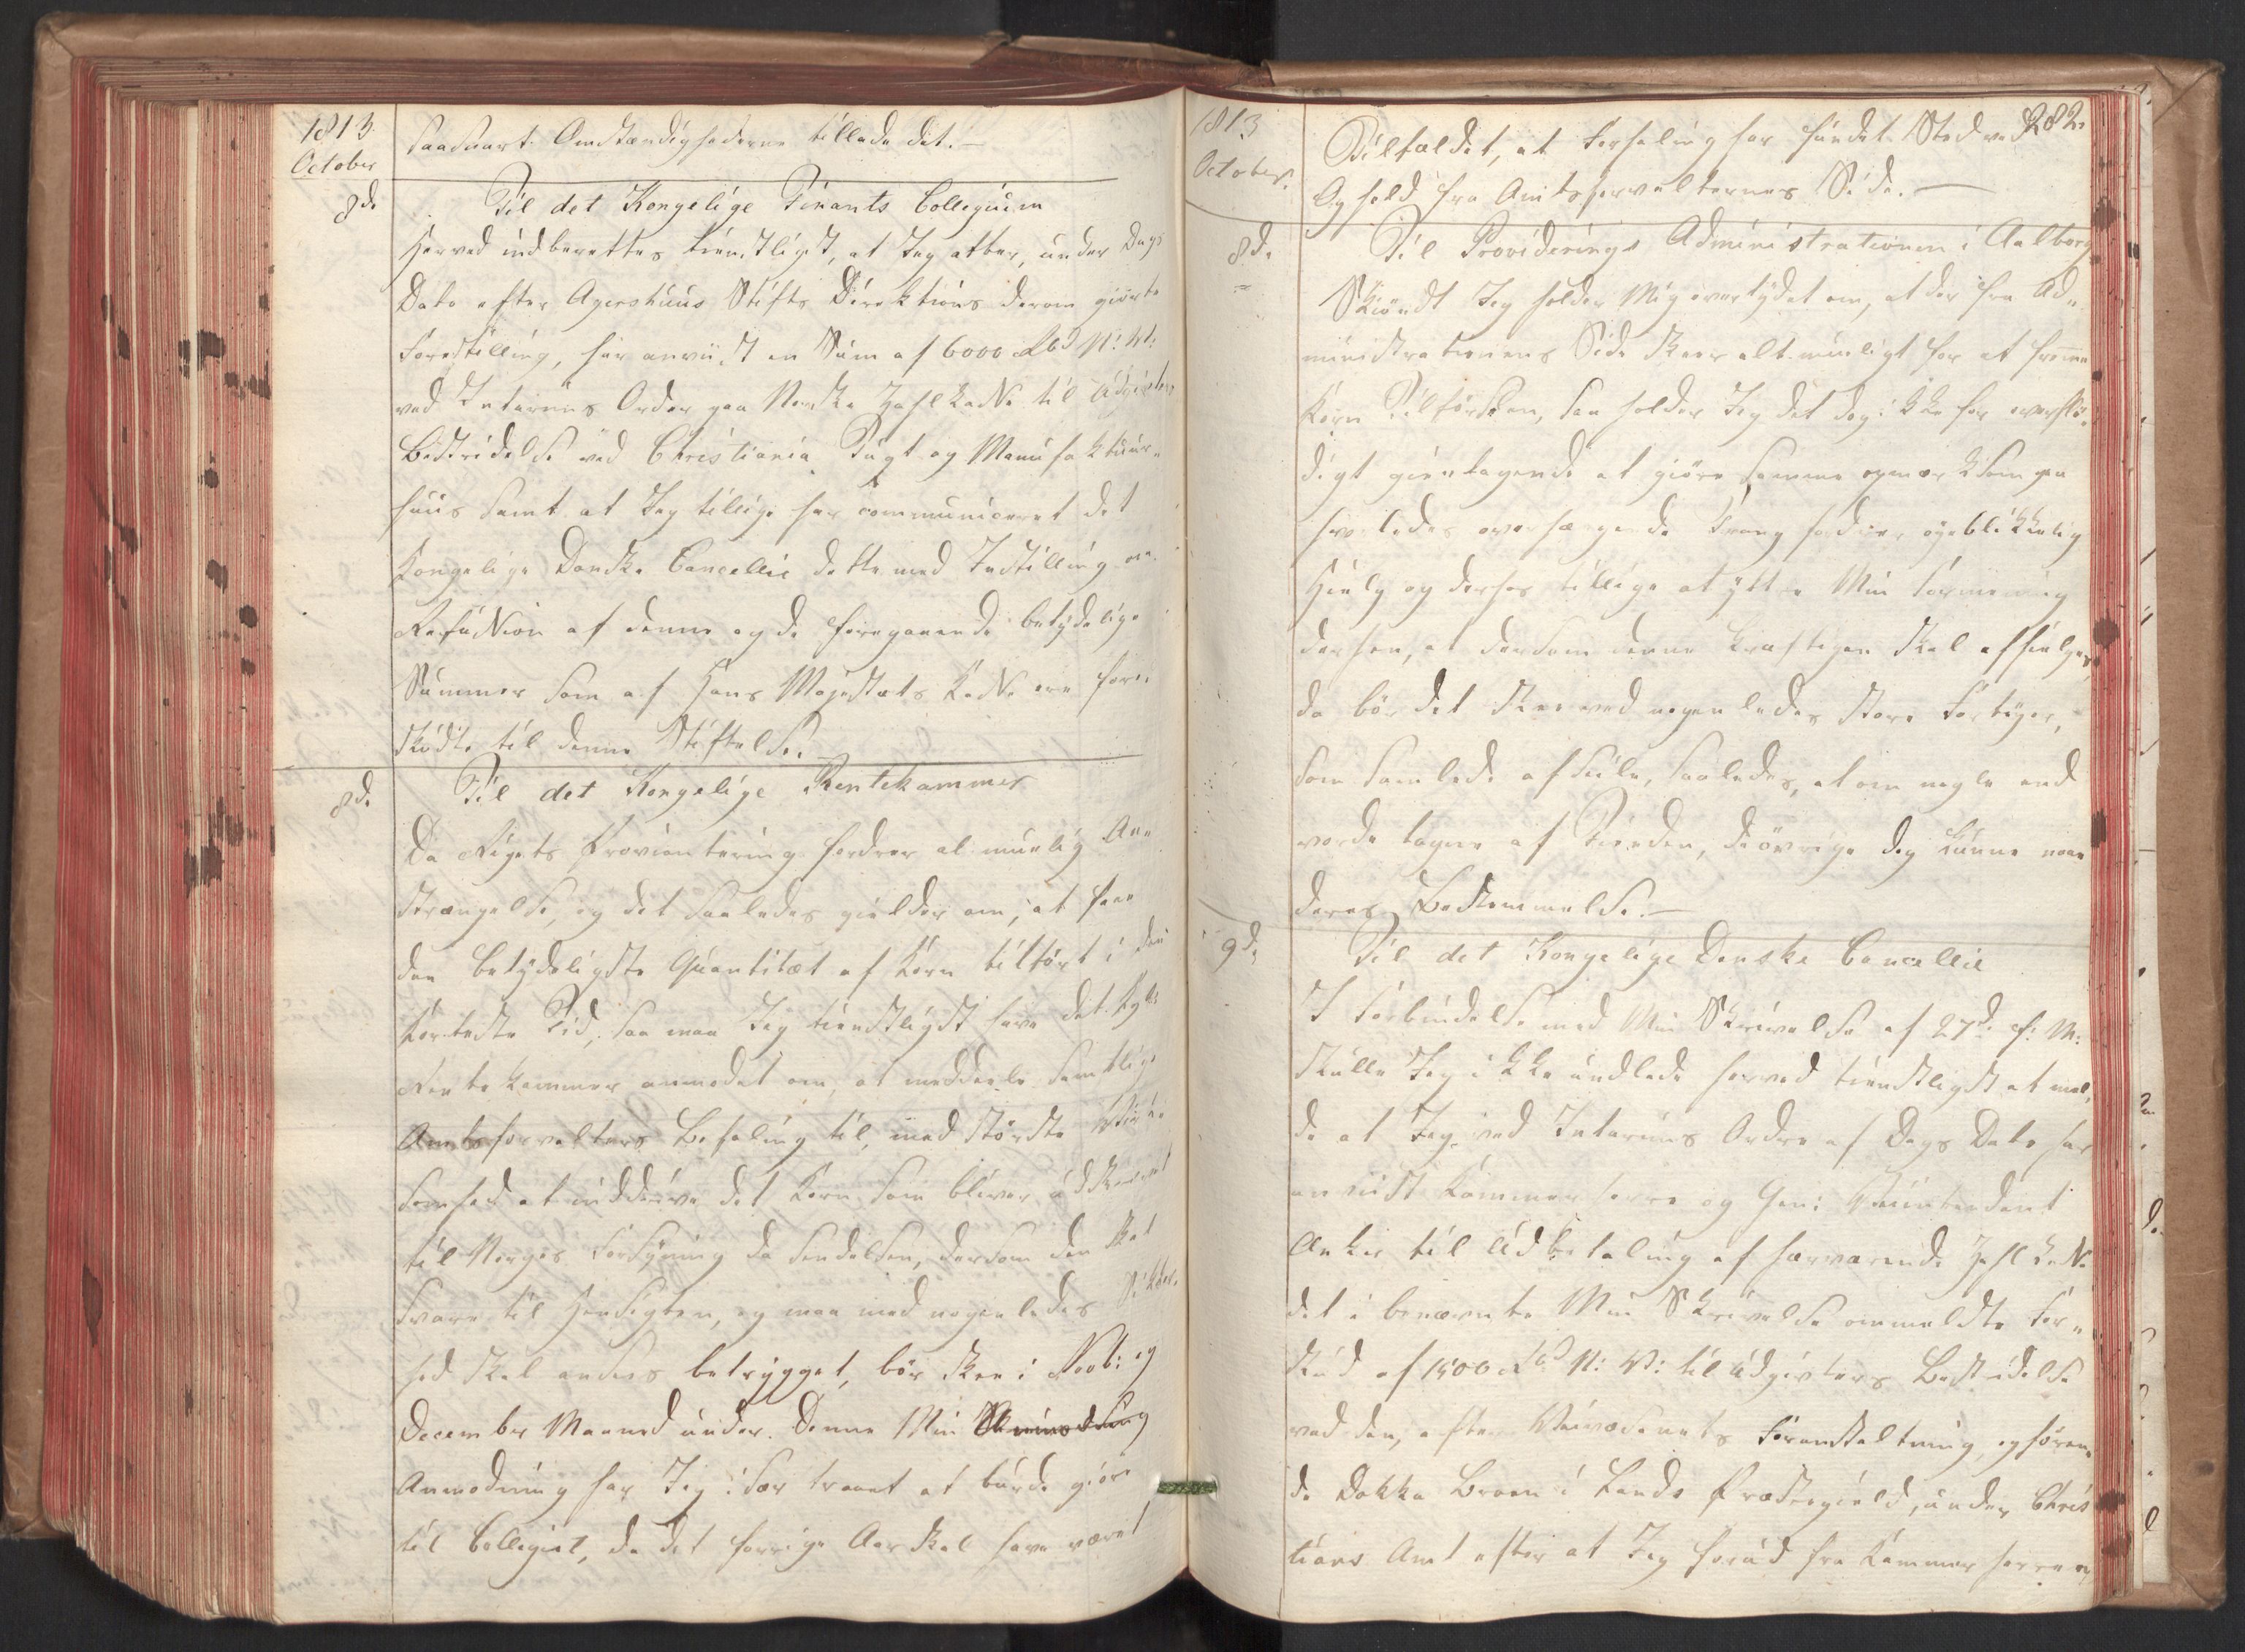 1813
October
saasnart Omstændighederne tillade det. –
8de
Til det Kongelige Finants Collegium
Herved indberettes tienstligst, at Jeg atter, under Dags
Dato efter Agershuus Stifts Direktions derom giorte
Forestilling, har anviist en Sum af 6000 Rbd N: V:
ved Interims Ordre paa Norske Zahlkasse til Udgivters
Bestridelse ved Christiania Tugt og Manufaktuur-
huus samt at Jeg tillige har communiceret det
Kongelige Danske Cancellie dette med Indstilling om
Refusion af denne og de foregaaende betydelige
Summer som af Hans Majestæts Kasse ere for-
skudte til denne Stiftelse.
8de
Til det Kongelige Rentekammer
Da Rigets Proviantering fordrer al muelig An-
strængelse, og det saaledes gielder om, at faae
den betydeligste Quantitæt af Korn tilført i den
korteste Tid, saa maa Jeg tienstligst have det Kgl:
Rentekammer anmodet om, at meddeele samtlige
Amtsforvaltere Befaling til, med største Virk-
somhed at inddrive det Korn som bliver udskrevet
til Norges Forsyning da Sendelsen, dersom den skal
svare til Hensigten, og man med nogenledes Sikker-
hed skal ansees betrygget, bør skee i Novb: og
December Maaned under. Denne Min
Anmodning har Jeg især troet at burde giøre
til Collegiet, da det forrige Aar skal have været
1813
October.
282.
Tilfældet, at Forhaling har fundet Sted ved
Ophold fra Amtsforvalternes Side. –
8de
Til Provideringe Administrationen i Aalborg
Skiøndt Jeg holder Mig overtydet om, at der fra Ad-
ministrationens Side skeer alt mueligt for at fremme
Korn Tilførselen, saa holder Jeg det dog ikke for overflø-
digt gientagende at giøre samme opmærksom paa
hvorledes overhængende Trang fordrer øyeblikkelig
Hielp og derhos tillige at yttre Min Formening
derhen, at dersom denne kraftigen skal afhielpes,
da bør det skee ved nogenledes store Fartøyer,
som samlede afseile, saaledes, at om nogle end
vorde tagne af Fienden, de øvrige dog kunne naae
deres Bestemmelse. –
9de
Til det Kongelige Danske Cancellie
I Forbindelse med Min Skrivelse af 27de f: M:
skulle Jeg ikke undlade herved tienstligst at mel-
de at Jeg, ved Interims Ordre af Dags Dato har
anviist Kammerherre og Gen: Veiintendant
Anker til Udbetaling af herværende Zahlkasse
det i benævnte Min Skrivelse ommeldte For-
skud af 1500 Rbd N: V: til Udgivters Bestridelse
ved den, efter Veivæsenets Foranstaltning, opføren-
de Dokka Broen i Lands Præstegield, under Chris
tians Amt efter at Jeg forud fra Kammerherren